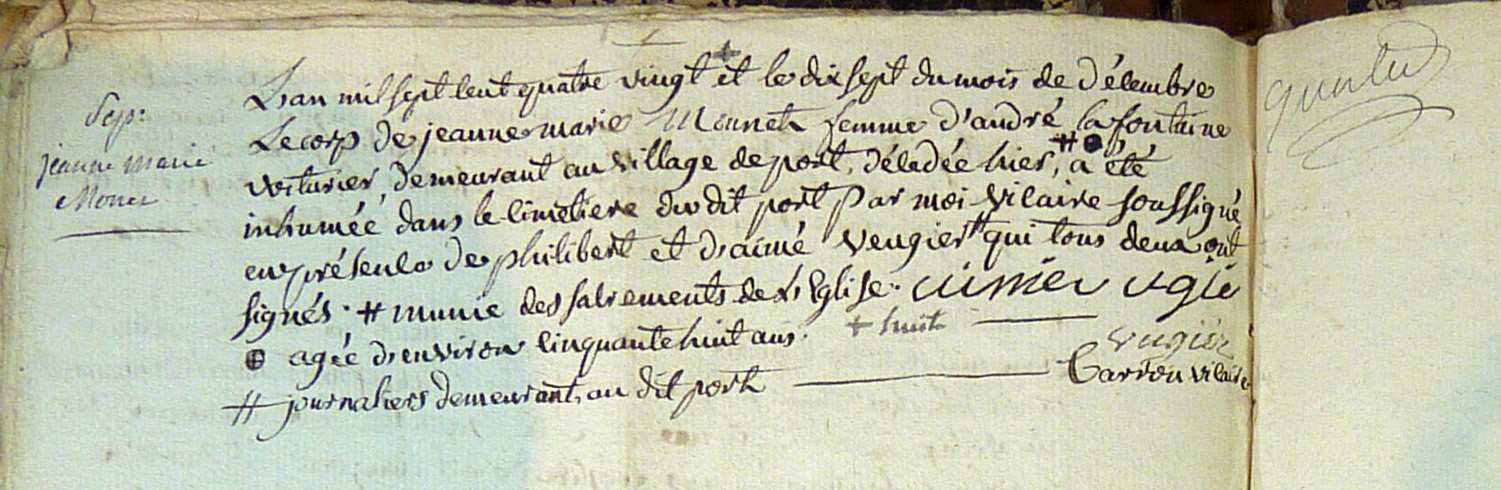 Sep:
jeanne marie
Monet
L'an mil sept cent quatre vingt + et le dix sept du mois de décembre
Le corp de jeanne marie Monneth femme d'andré la fontaine
voiturier, demeurant au village de port, décédée hier, # ⊕ a été
inhumée dans le cimetiere du dit port par moi vicaire soussigné
en présence de philibert et d'aimé Vengier # qui tous deux ont
signés. # munie des sacrements de L'Eglise. aimé ugié
⊕ agée d'environ cinquante huit ans. + huit vugier
# journaliers demeurant, au dit port Carron vicaire